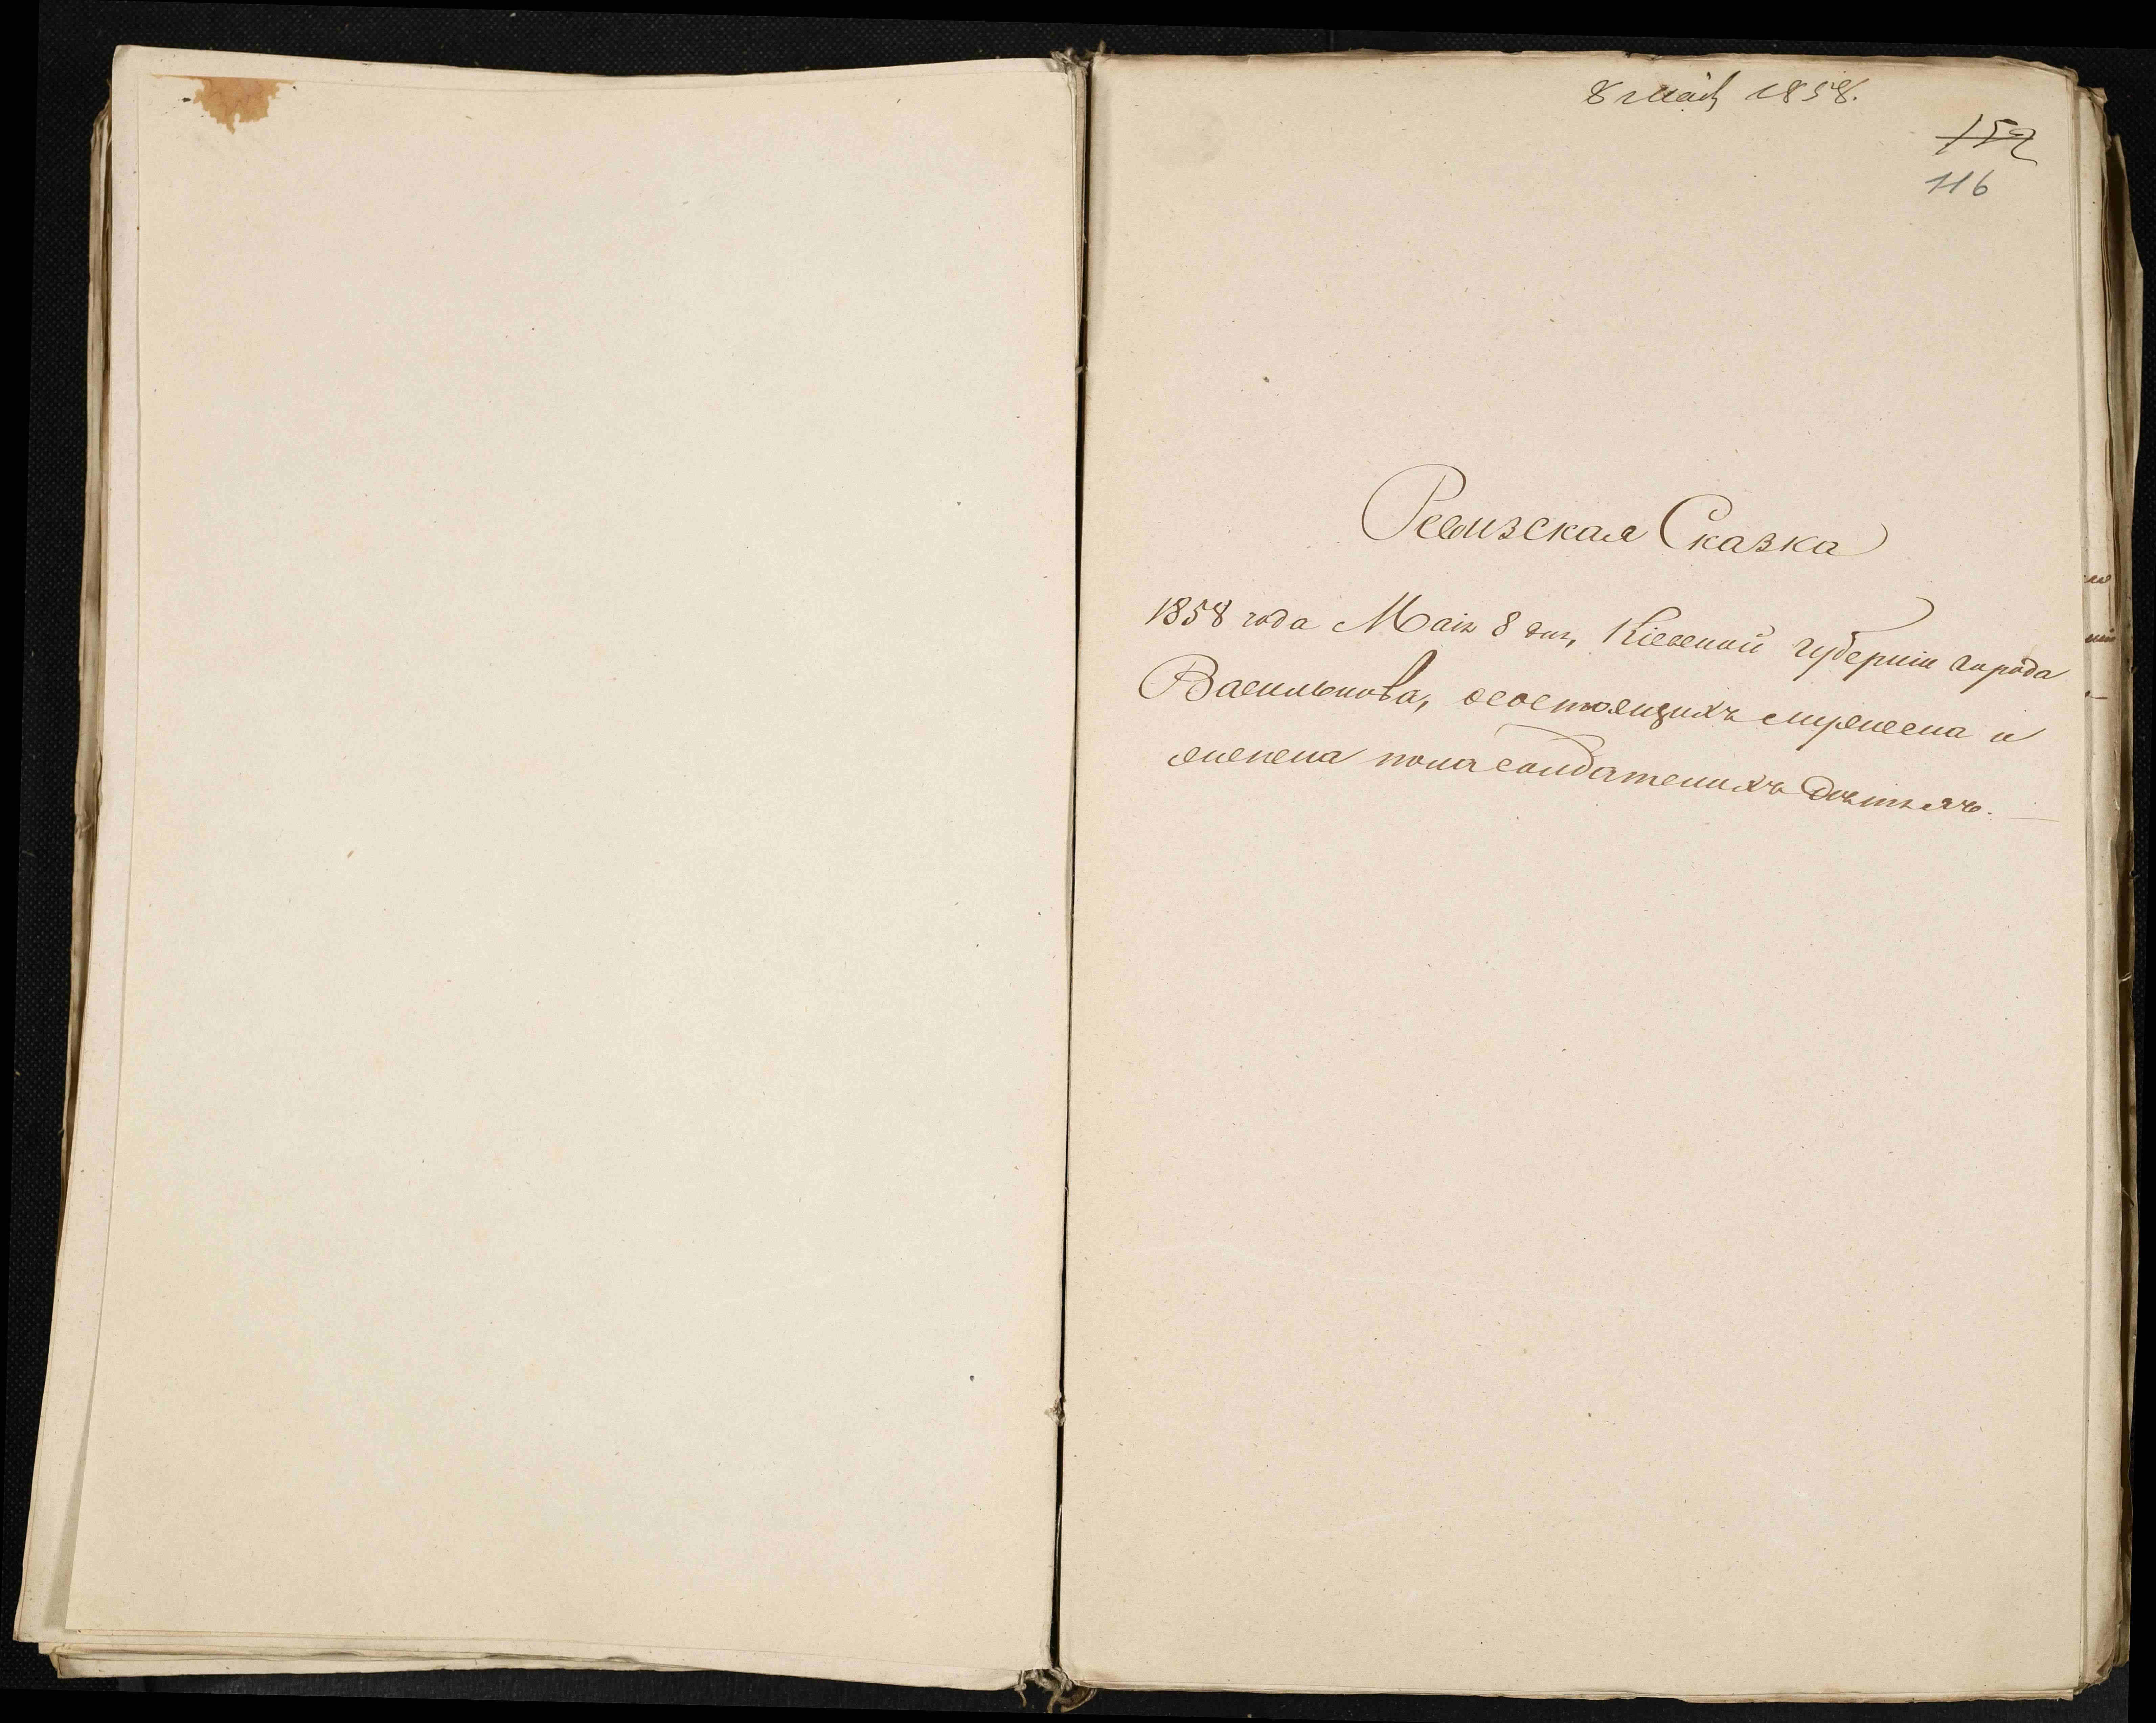 8 маія 1858.
152
116
Ревизская Сказка
1858 года Маія 8 дня, Кіевской губерніи города
Василькова, о состоящихъ мужеска и
женска пола солдатскихъ дѣтяхъ.